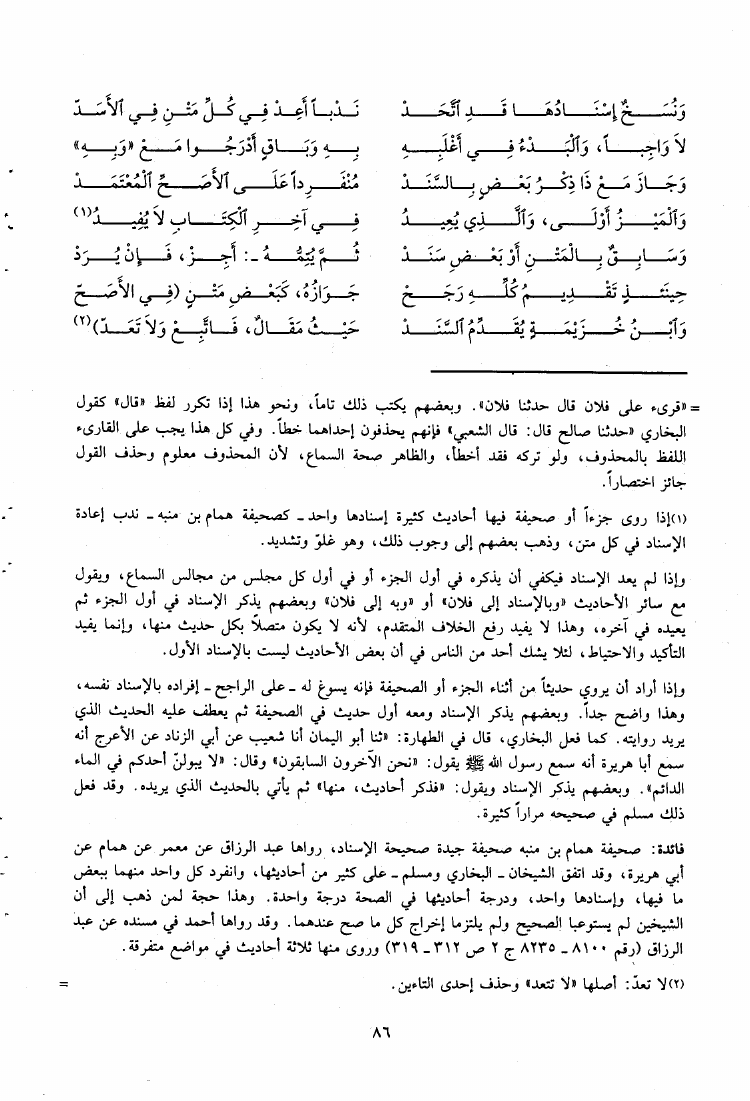 وَنُسَخٌ إِسْنَادُهَا قَدِ اتَّحَدْ نَدْباً أَعِدْ فِي كُلِّ مَتْنٍ فِي الْأَسَدّ
لاَ وَاجِباً، وَالْبَدْءُ فِي أَغْلَبِهِ بِهِ وَبَاقٍ أَدْرَجُوا مَعْ «وَبِهِ»
وَجَازَ مَعْ ذَا ذِكْرُ بَعْضٍ بِالسَّنَدْ مُنْفَرِداً عَلَى الْأَصَحِّ الْمُعْتَمَدْ
وَالْمَيْزُ أَوْلَى، وَالَّذِي يُعِيدُ فِي آخِرِ الْكِتَابِ لاَ يُفِيدُ(١)
وَسَابِقٌ بِالْمَتْنِ أَوْ بَعْضِ سَنَدْ ثُمَّ يُتِمُّهُ ـ: أَجِزْ، فَإِنْ يُرَدْ
حِينَئِذٍ تَقْدِيمُ كُلِّهِ رَجَحْ جَوَازُهُ، كَبَعْضِ مَتْنٍ (فِي الأَصَحّ
وَابْنُ خُزَيْمَةٍ يُقَدِّمُ السَّنَدْ حَيْثُ مَقَالٌ، فَاتَّبِعْ وَلاَ تَعَدّ)(٢)
= «قرىء على فلان قال حدثنا فلان». وبعضهم يكتب ذلك تاماً، ونحو هذا إذا تكرر لفظ «قال» كقول
البخاري «حدثنا صالح قال: قال الشعبي» فإنهم يحذفون إحداهما خطاً. وفي كل هذا يجب على القارىء
اللفظ بالمحذوف، ولو تركه فقد أخطأ، والظاهر صحة السماع، لأن المحذوف معلوم وحذف القول
جائز اختصاراً.
(١)إذا روى جزءاً أو صحيفة فيها أحاديث كثيرة إسنادها واحد ـ كصحيفة همام بن منبه ـ ندب إعادة
الإسناد في كل متن، وذهب بعضهم إلى وجوب ذلك، وهو غلوّ وتشديد.
وإذا لم يعد الإسناد فيكفي أن يذكره في أول الجزء أو في أول كل مجلس من مجالس السماع، ويقول
مع سائر الأحاديث «وبالإسناد إلى فلان» أو «وبه إلى فلان» وبعضهم يذكر الإسناد في أول الجزء ثم
يعيده في آخره، وهذا لا يفيد رفع الخلاف المتقدم، لأنه لا يكون متصلاً بكل حديث منها، وإنما يفيد
التأكيد والاحتياط، لئلا يشك أحد من الناس في أن بعض الأحاديث ليست بالإسناد الأول.
وإذا أراد أن يروي حديثاً من أثناء الجزء أو الصحيفة فإنه يسوغ له ـ على الراجح ـ إفراده بالإسناد نفسه،
وهذا واضح جداً. وبعضهم يذكر الإسناد ومعه أول حديث في الصحيفة ثم يعطف عليه الحديث الذي
يريد روايته. كما فعل البخاري، قال في الطهارة: «ثنا أبو اليمان أنا شعيب عن أبي الزناد عن الأعرج أنه
سمع أبا هريرة أنه سمع رسول الله ﷺ يقول: «نحن الآخرون السابقون» وقال: «لا يبولنّ أحدكم في الماء
الدائم». وبعضهم يذكر الإسناد ويقول: «فذكر أحاديث، منها» ثم يأتي بالحديث الذي يريده. وقد فعل
ذلك مسلم في صحيحه مراراً كثيرة.
فائدة: صحيفة همام بن منبه صحيفة جيدة صحيحة الإسناد، رواها عبد الرزاق عن معمر عن همام عن
أبي هريرة، وقد اتفق الشيخان ـ البخاري ومسلم ـ على كثير من أحاديثها، وانفرد كل واحد منهما ببعض
ما فيها، وإسنادها واحد، ودرجة أحاديثها في الصحة درجة واحدة. وهذا حجة لمن ذهب إلى أن
الشيخين لم يستوعبا الصحيح ولم يلتزما إخراج كل ما صح عندهما. وقد رواها أحمد في مسنده عن عبد
الرزاق (رقم ٨١٠٠ ـ ٨٢٣٥ ج ٢ ص ٣١٢ ـ ٣١٩) وروى منها ثلاثة أحاديث في مواضع متفرقة.
(٢)لا تعدّ: أصلها «لا تتعد» وحذف إحدى التاءين. =
٨٦